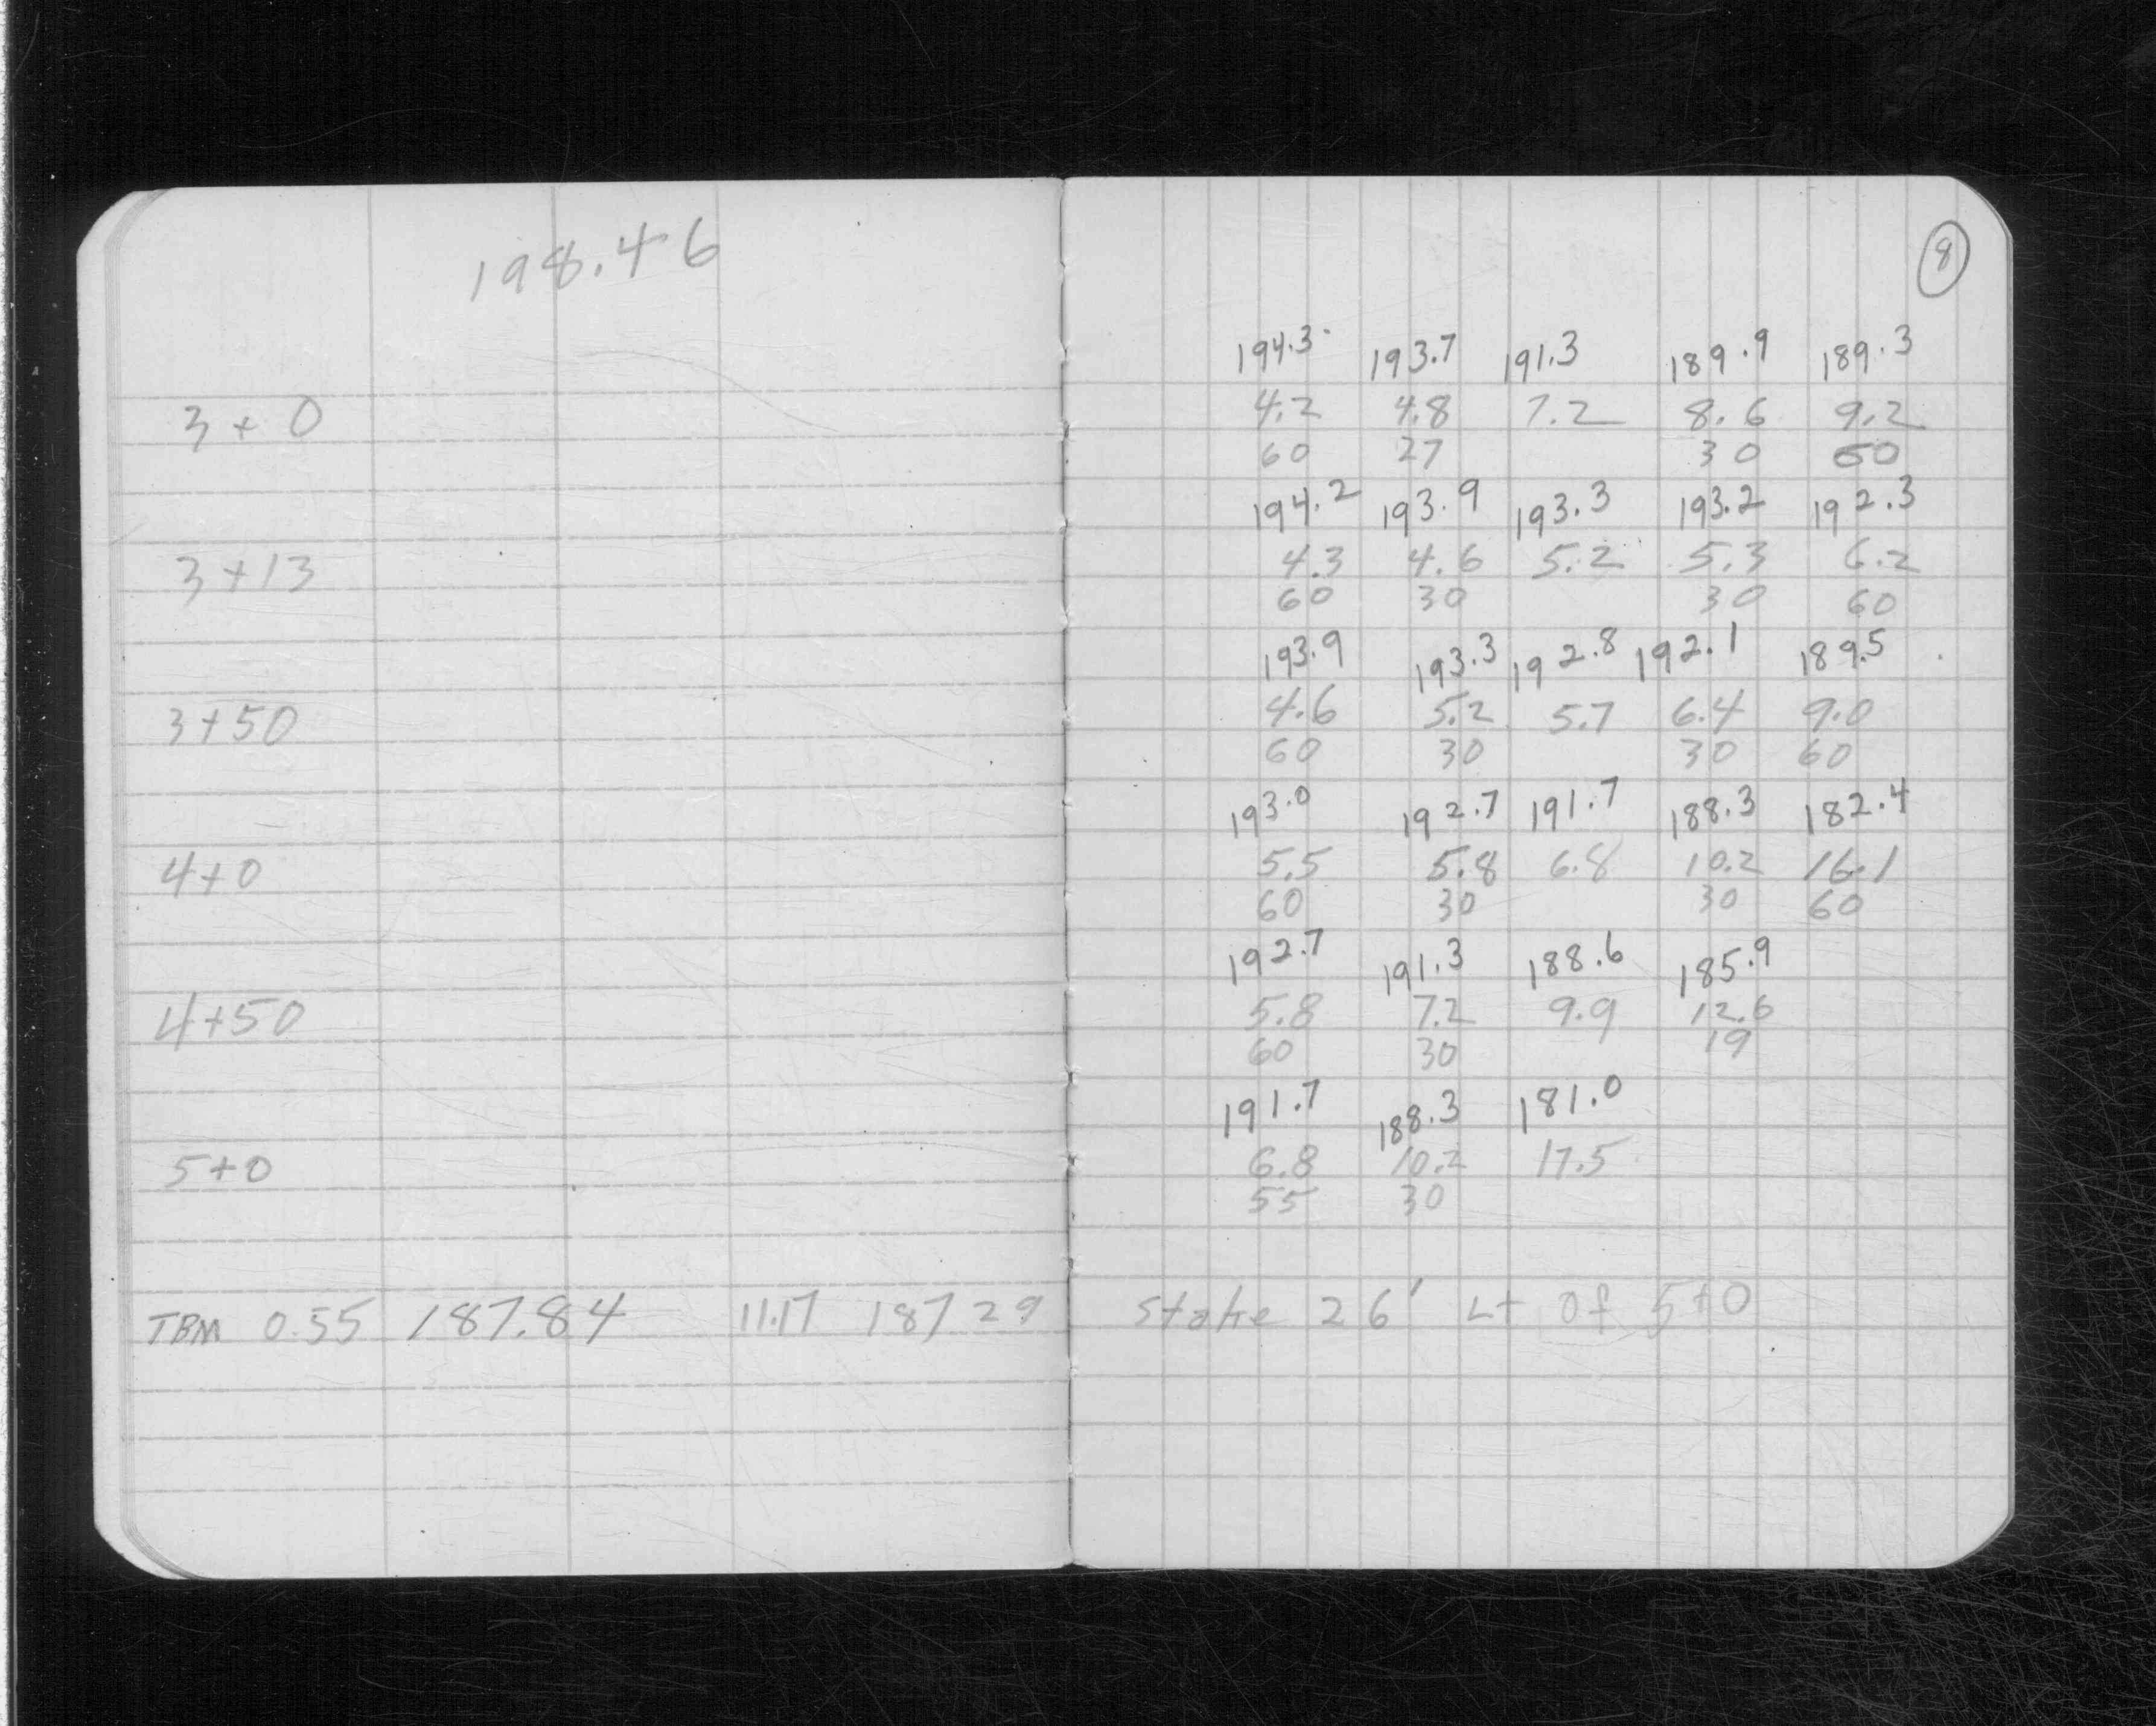 198.46
8
194.3 193.7 191.3 189.9 189.3
3+0 4.2 4.8 7.2 8.6 9.2
60 27 30 60
194.2 193.9 193.3 193.2 192.3
3+13 4.3 4.6 5.2 5.3 6.2
60 30 30 60
193.9 193.3 192.8 192.1 189.5
3+50 4.6 5.2 5.7 6.4 9.0
60 30 30 60
193.0 192.7 191.7 188.3 182.4
4+0 5.5 5.8 6.8 10.2 16.1
60 30 30 60
192.7 191.3 188.6 185.9
4+50 5.8 7.2 9.9 12.6
60 30 19
191.7 188.3 181.0
5+0 6.8 10.2 17.5
55 30
TBM 0.55 187.84 11.17 187.29 Stake 26' Lt Of 5+0